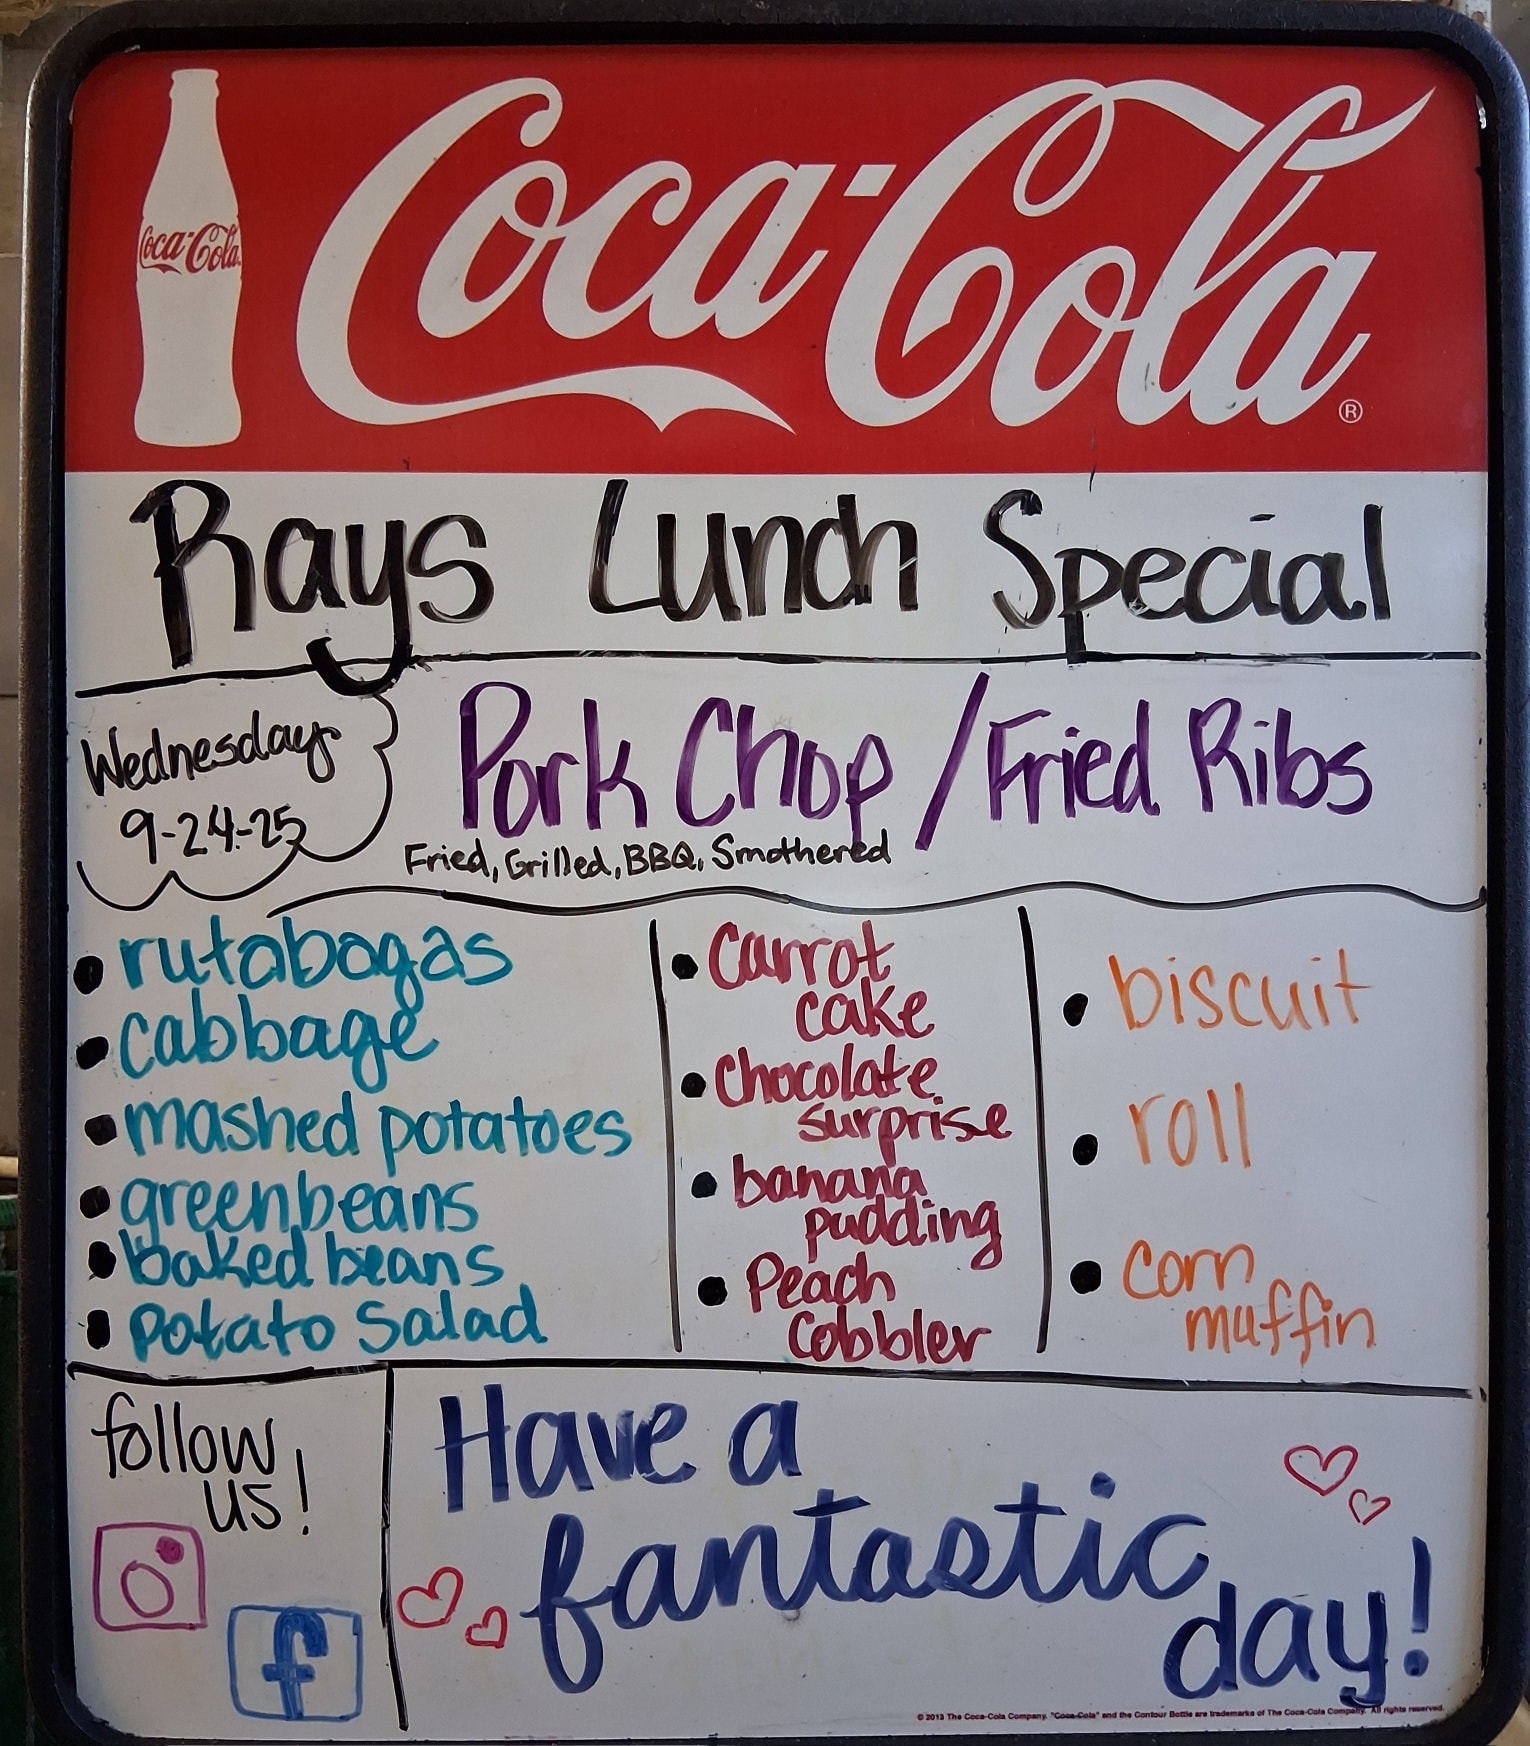 Coca-Cola
Coca-Cola®
Rays Lunch Special
Wednesday
9-24-25
Pork Chop / Fried Ribs
Fried, Grilled, BBQ, Smothered
• rutabagas
• cabbage
• mashed potatoes
• greenbeans
• baked beans
• potato Salad
• Carrot
cake
• Chocolate
surprise
• banana
pudding
• Peach
Cobbler
• biscuit
• roll
• Corn
muffin
follow
us!
f
Have a
fantastic
day!
© 2013 The Coca-Cola Company. "Coca-Cola" and the Contour Bottle are trademarks of The Coca-Cola Company. All rights reserved.